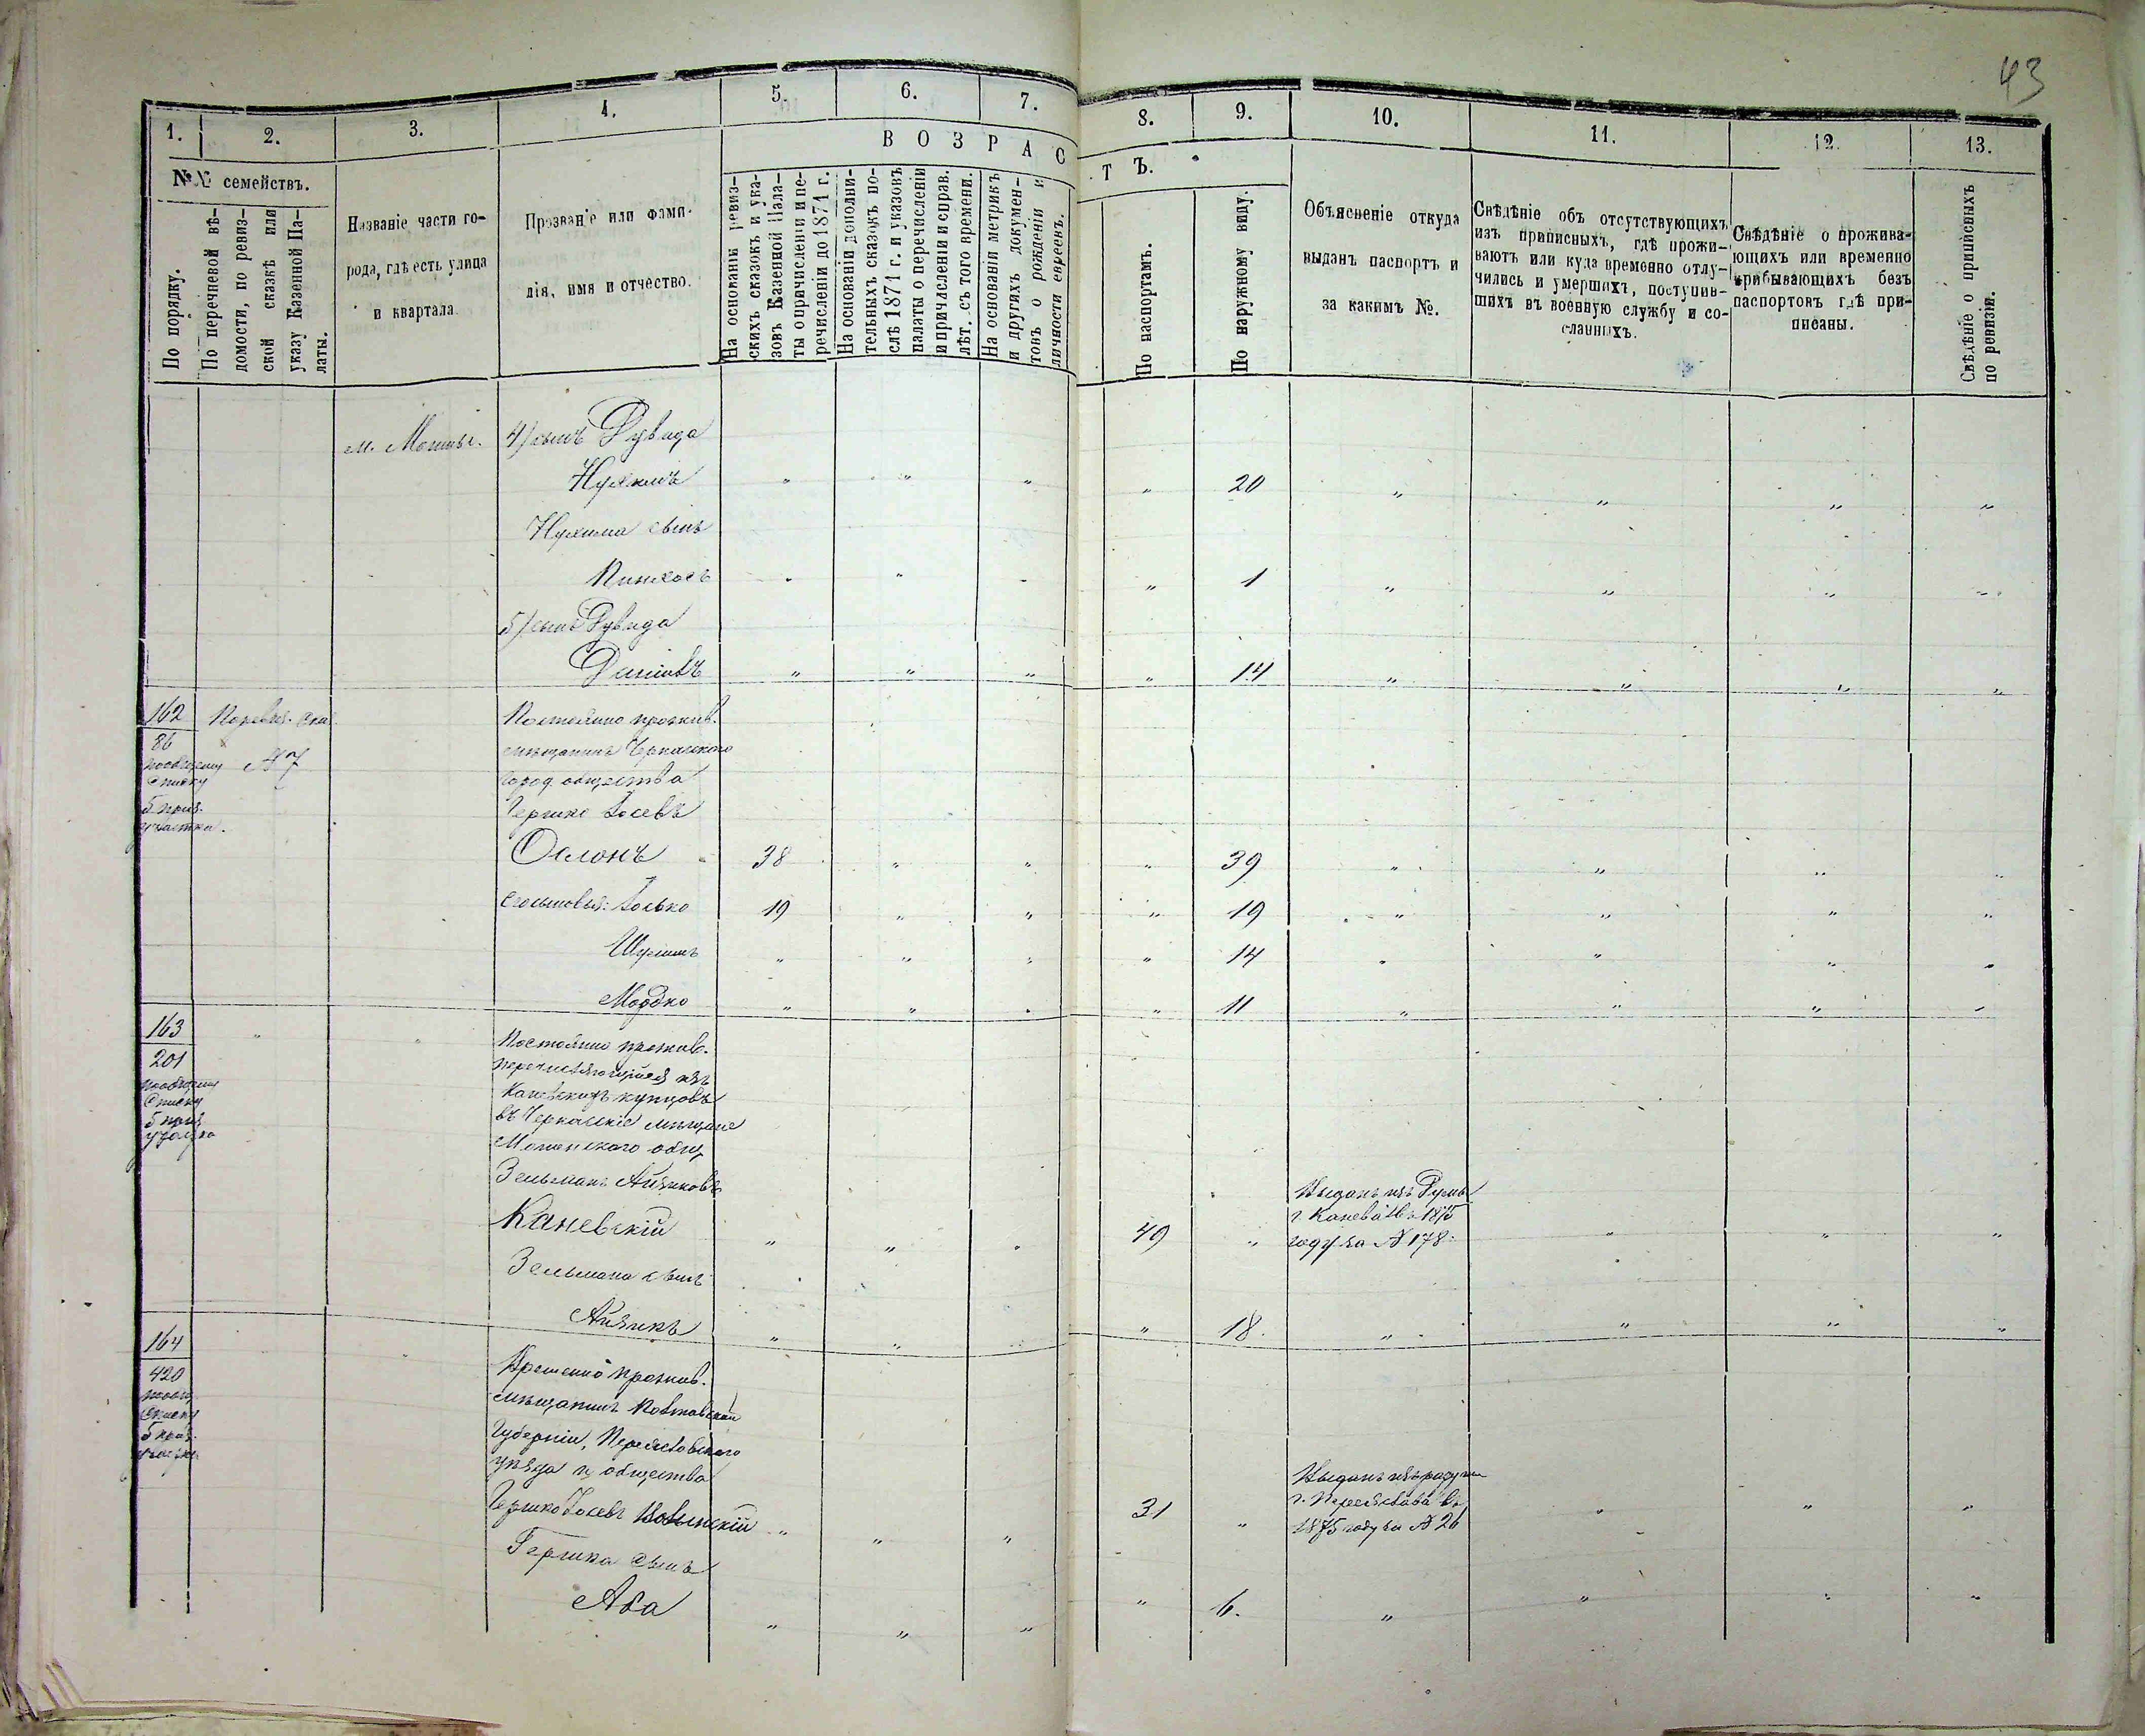 43
1.
2.
3.
4.
5.
6.
7.
8.
9.
10.
11.
12.
13.
№№ семействъ.
По порядку.
По перечневой вѣ-
домости, по ревиз-
ской сказкѣ или
указу Казенной Па-
латы.
Названіе части го-
рода, гдѣ есть улица
и квартала.
Прозваніе или фами-
лія, имя и отчество.
ВОЗРАСТЪ.
На основаніи ревиз-
скихъ сказокъ и ука-
зовъ Казенной Пала-
ты о причисленіи и пе-
речисленіи до 1871 г.
На основаніи дополни-
тельныхъ сказокъ по-
слѣ 1871 г. и указовъ
палаты о перечисленіи
и причисленіи и справ.
лѣт. съ того времени.
На основаніи метрикъ
и другихъ докумен-
товъ о рожденіи и
личности евреевъ.
По паспортамъ.
По наружному виду.
Объясненіе откуда
выданъ паспортъ и
за какимъ №.
Свѣдѣніе объ отсутствующихъ
изъ приписныхъ, гдѣ прожи-
ваютъ или куда временно отлу-
чились и умершихъ, поступив-
шихъ въ военную службу и со-
сланныхъ.
Свѣдѣніе о прожива-
ющихъ или временно
прибывающихъ безъ
паспортовъ гдѣ при-
писаны.
Свѣдѣніе о приписныхъ
по ревизіи.
м. Мошны.
4) сынъ Рувида
Нухимъ " " " " 20 " " " "
Нухима сынъ
Пинхосъ " " " " 1 " " " "
5) сынъ Рувида
Даніилъ " " " " 14 " " " "
162
Поревиз. сказ.
86
пообщему
списку
5 приз.
участка.
№ 7
Постоянно прожив.
мѣщанинъ Черкасскаго
город. общества
Гершко Іосевъ
Ослонъ 38 " " " 39 " " " "
сыновья: Іосько 19 " " " 19 " " " "
Шулимъ " " " " 14 " " " "
Мордко " " " " 11 " " " "
163
201
пообщему
списку
5 приз.
участка
Постоянно прожив.
перечисляющійся изъ
Каневскихъ купцовъ
въ Черкасскіе мѣщане
Мошенскаго общ.
Зельманъ Айзиковъ
Каневскій " " " 49 "
Выданъ изъ Думы
г. Канева въ 1875
году за № 178.
Зельмана сынъ
Айзикъ " " " " 18. " " " "
164
420
пообщ.
списку
5 приз.
участка
Временно прожив.
мѣщанинъ Полтавской
Губерніи, Переяславскаго
уѣзда и общества
Гершко Іосевъ Волынскій " " " 31 "
Выданъ изъ ратуши
г. Переяслава въ
1875 году за № 26
Гершка сынъ
Аба " " " " 6. " " " "